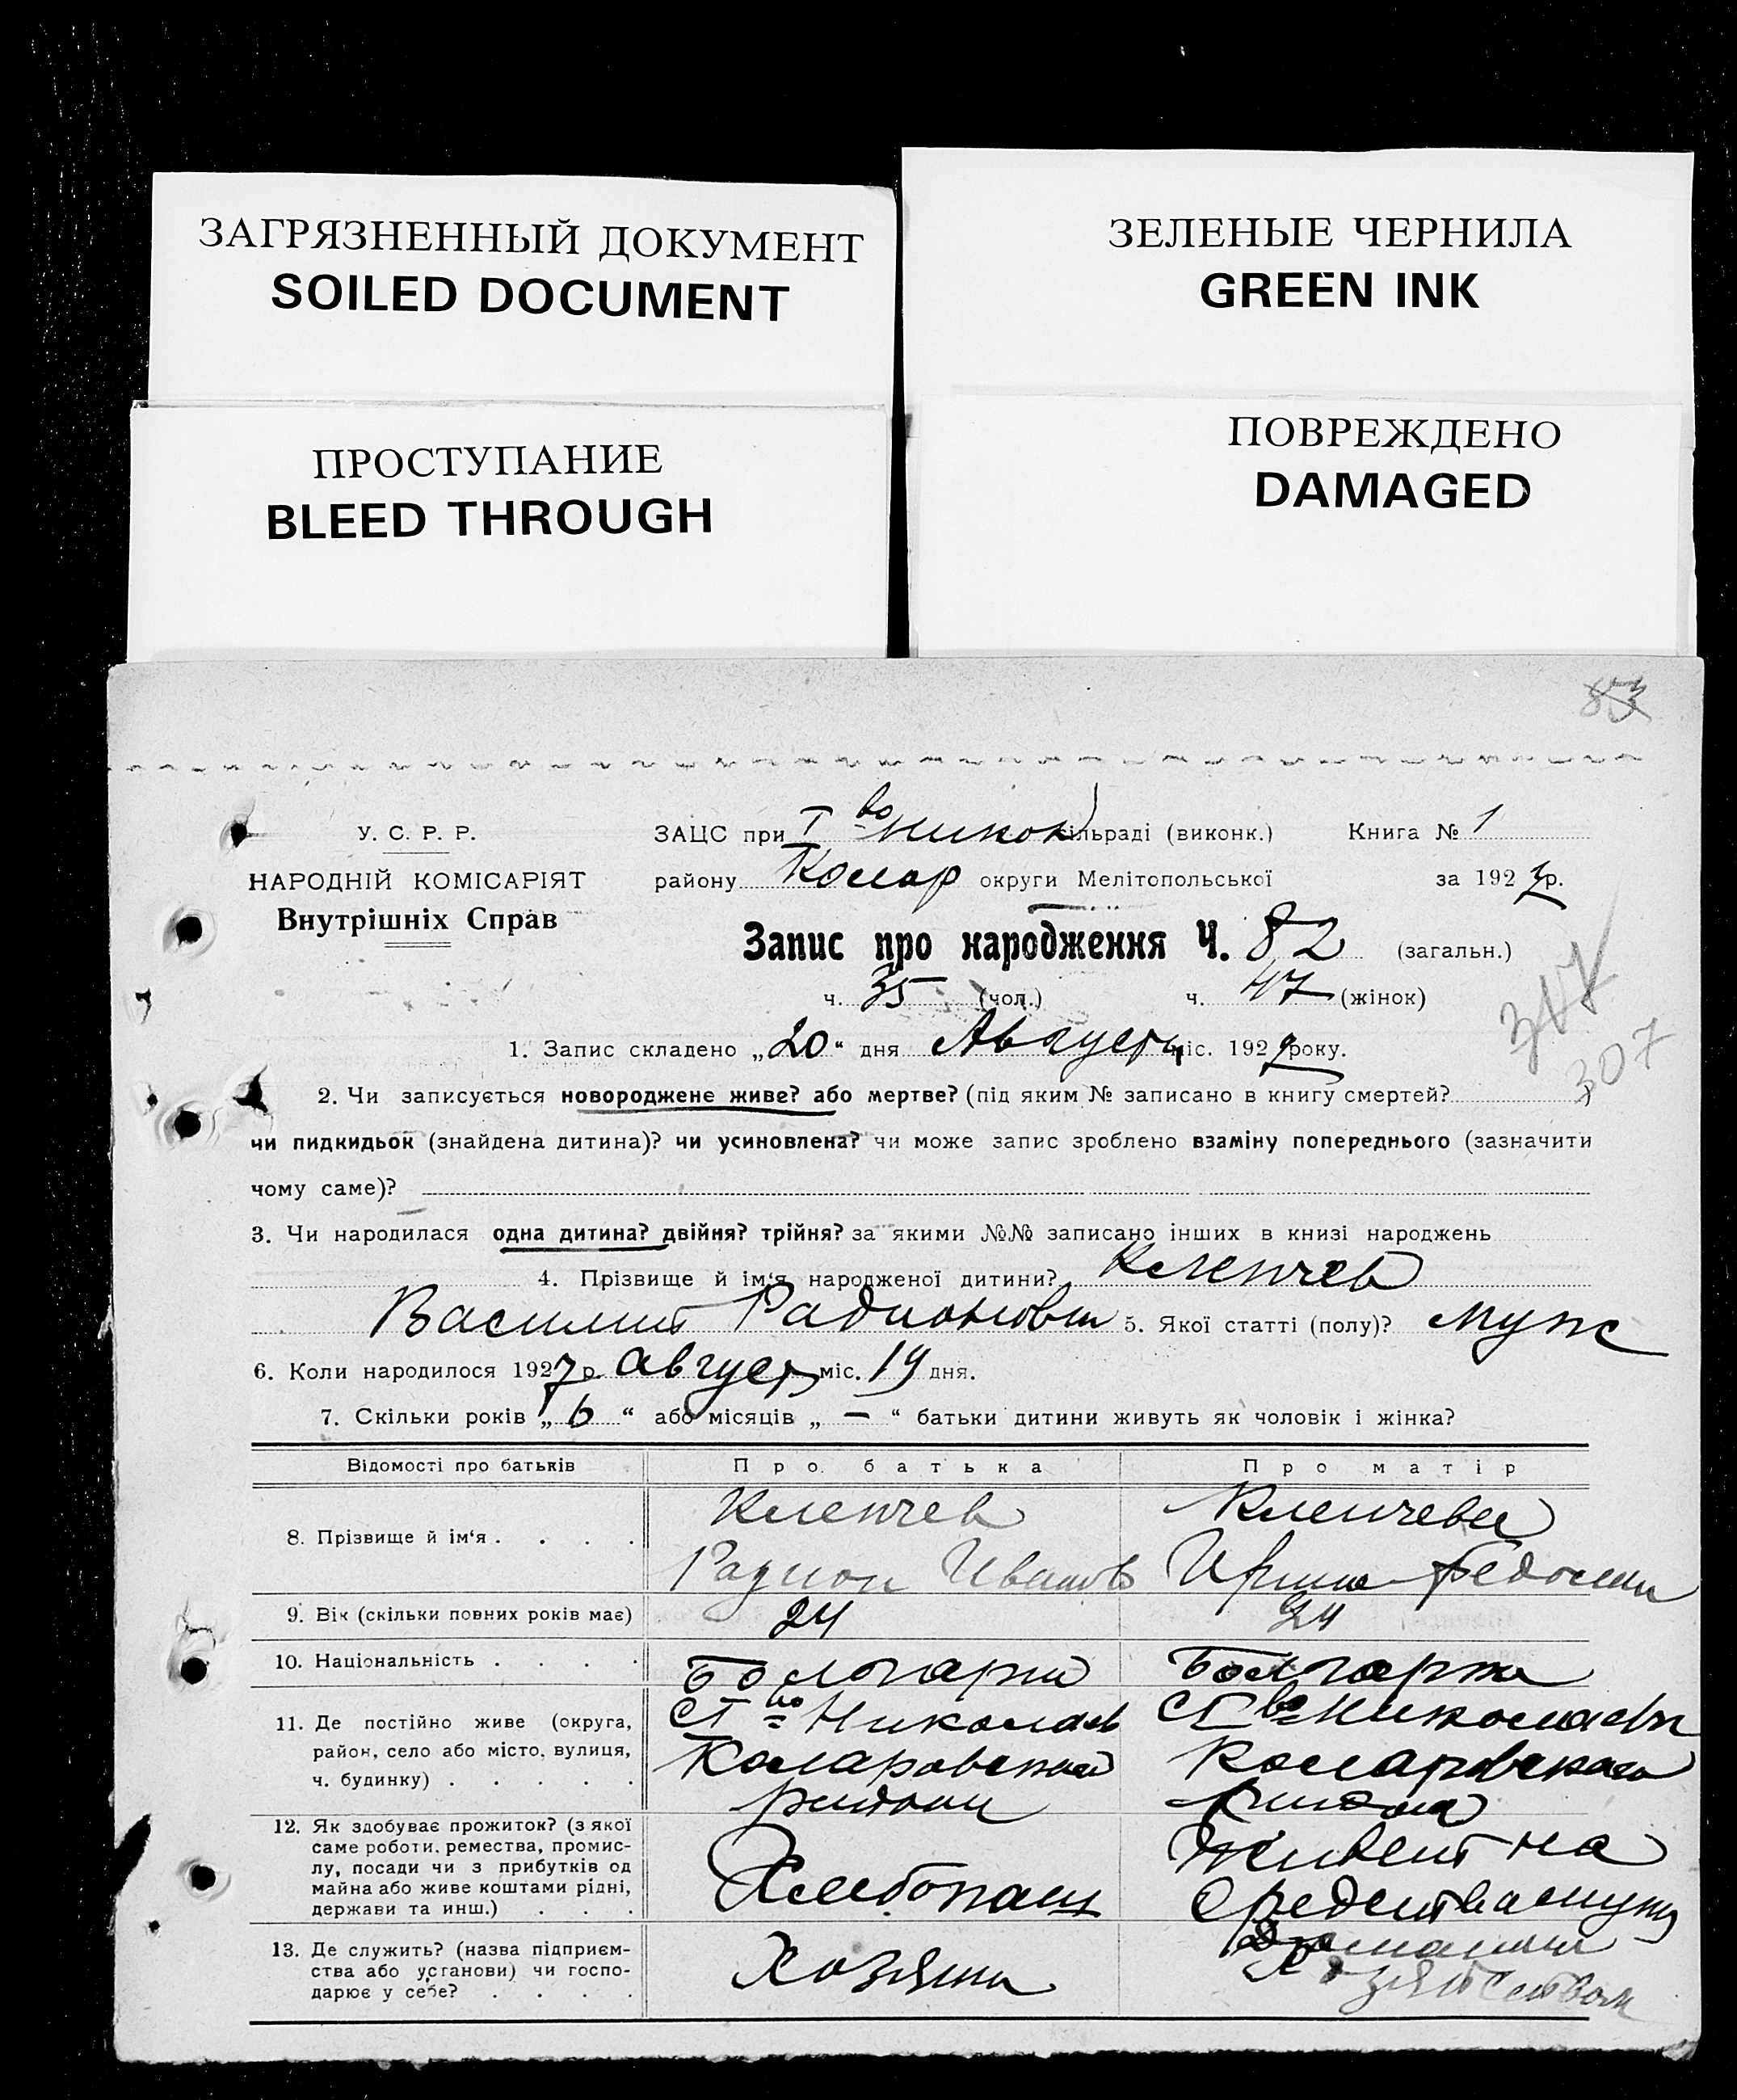 ЗАГРЯЗНЕННЫЙ ДОКУМЕНТ
SOILED DOCUMENT
ЗЕЛЕНЫЕ ЧЕРНИЛА
GREEN INK
ПРОСТУПАНИЕ
BLEED THROUGH
ПОВРЕЖДЕНО
DAMAGED
83
У. С. Р. Р.
ЗАЦС при I во Никол сільраді (виконк.) Книга № 1
НАРОДНІЙ КОМІСАРІЯТ
району Колар округи Мелітопольської за 1927 р.
Внутрішніх Справ
Запис про народження Ч. 82 (загальн.)
ч. 35 (чол.) ч. 47 (жінок)
1. Запис складено „20“ дня Август міс. 1927 року.
307
2. Чи записується новороджене живе? або мертве? (під яким № записано в книгу смертей? )
чи пидкидьок (знайдена дитина)? чи усиновлена? чи може запис зроблено взаміну попереднього (зазначити
чому саме)?
3. Чи народилася одна дитина? двійня? трійня? за якими №№ записано інших в книзі народжень
4. Прізвище й ім‘я народженої дитини? Клепчев
Василий Радионович 5. Якої статті (полу)? муж
6. Коли народилося 1927 р. август міс. 19 дня.
7. Скільки років „ 6 “ або місяців „ — “ батьки дитини живуть як чоловік і жінка?
Відомості про батьків Про батька Про матір
8. Прізвище й ім‘я . . . . Клепчев Клепчева
Радион Иванов Ирина
9. Вік (скільки повних років має) 24 24
10. Національність . . . . Болгарин Болгарка
11. Де постійно живе (округа,
район, село або місто, вулиця,
ч. будинку) . . . . .
С I во Николаев
Коларовский
района
С I во Николаевка
Коларовского
района
12. Як здобуває прожиток? (з якої
саме роботи, ремества, промис-
лу, посади чи з прибутків од
майна або живе коштами рідні,
держави та инш.) . . .
Хлебопаш
Живет на
средства мужа
13. Де служить? (назва підприєм-
ства або установи) чи госпо-
дарює у себе? . . . .
Хозяин
Домашн
хозяйством